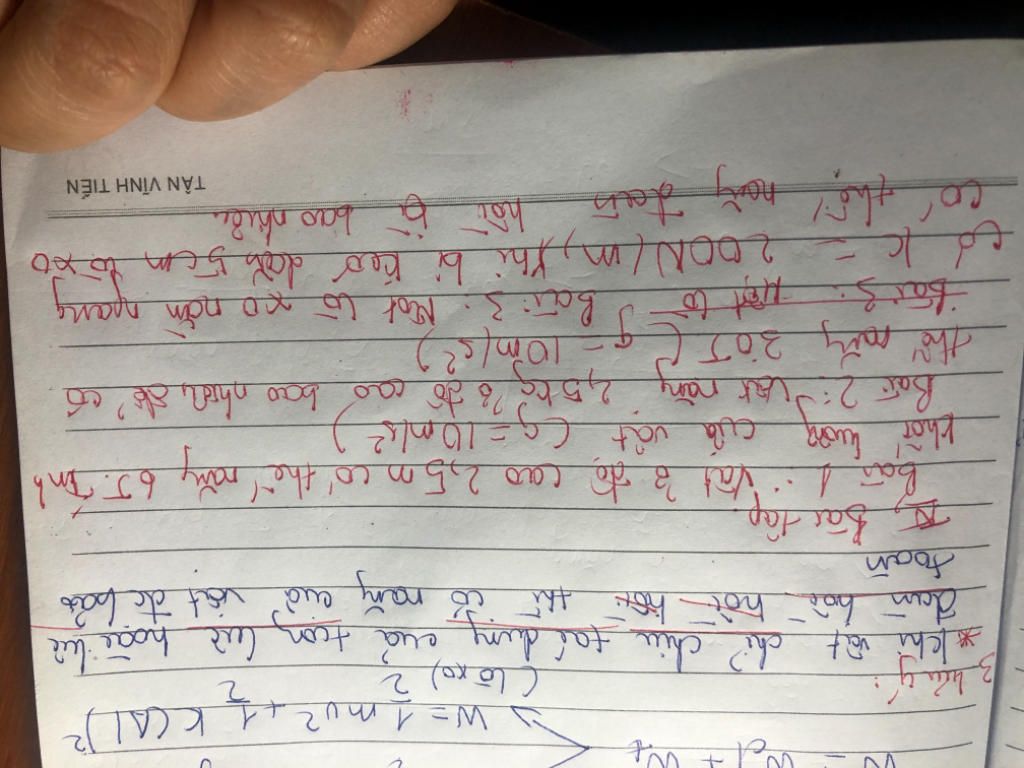 W = Wđ + Wt
⇒ W = 1/2 mv² + 1/2 K(Δl)²
(lò xo)
3 Lưu ý:
* Khi vật chỉ chịu tác dụng của trọng lực hoặc lực
đàn hồi thì cơ năng của vật đc bảo
toàn
Bài tập
Bài 1: Vật ở độ cao 2,5m có thế năng 6J. Tính
khối lượng của vật (g = 10m/s²)
Bài 2: Vật nặng 2,5kg ở độ cao bao nhiêu để có
thế năng 30J (g = 10m/s²)
Bài 3: Một lò Bài 3: Một lò xo nằm ngang
có K = 200N/m, khi bị kéo dãn 5cm lò xo
có thế năng đàn hồi là bao nhiêu.
TÂN VĨNH TIẾN